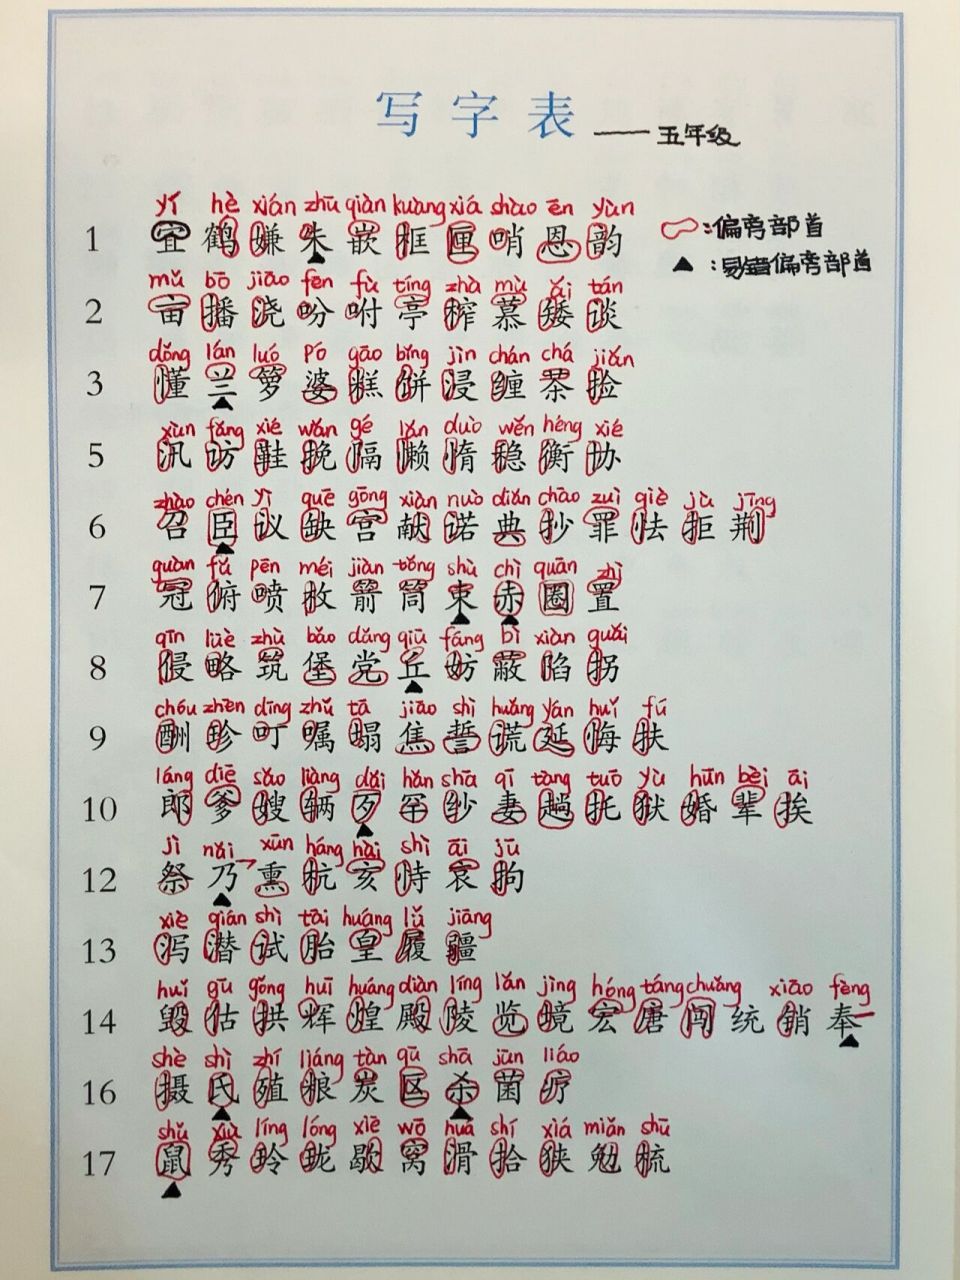 写字表 —— 五年级
yí hè xián zhū qiàn kuàng xiá shào ēn yùn
1 宜 鹤 嫌 朱 嵌 框 匣 哨 恩 韵
：偏旁部首
▲：易错偏旁部首
mǔ bō jiāo fēn fù tíng zhà mù ǎi tán
2 亩 播 浇 吩 咐 亭 榨 慕 矮 谈
dǒng lán luó pó gāo bǐng jìn chán chá jiǎn
3 懂 兰 箩 婆 糕 饼 浸 缠 茶 捡
xùn fǎng xié wǎn gé lǎn duò wěn héng xié
5 汛 访 鞋 挽 隔 懒 惰 稳 衡 协
zhào chén yì quē gōng xiàn nuò diǎn chāo zuì qiè jù jīng
6 召 臣 议 缺 宫 献 诺 典 抄 罪 怯 拒 荆
guàn fǔ pēn méi jiàn tǒng shù chì quān zhì
7 冠 俯 喷 枚 箭 筒 束 赤 圈 置
qīn lüè zhù bǎo dǎng qiū fáng bì xiàn guǎi
8 侵 略 筑 堡 党 丘 妨 蔽 陷 拐
chóu zhēn dīng zhǔ tā jiāo shì huǎng yán huǐ fú
9 酬 珍 叮 嘱 塌 焦 誓 谎 延 悔 扶
láng diē sǎo liàng dǎi hǎn shā qī tàng tuō yù hūn bèi āi
10 郎 爹 嫂 辆 歹 罕 纱 妻 趟 托 狱 婚 辈 挨
jì nǎi xūn háng hài shì āi jū
12 祭 乃 熏 杭 亥 恃 哀 拘
xiè qián shì tāi huáng lǚ jiāng
13 泻 潜 试 胎 皇 履 疆
huǐ gū gǒng huī huáng diàn líng lǎn jìng hóng táng chuǎng xiāo fèng
14 毁 估 拱 辉 煌 殿 陵 览 境 宏 唐 闯 统 销 奉
shè shì zhí liáng tàn qū shā jūn liáo
16 摄 氏 殖 粮 炭 区 杀 菌 疗
shǔ xiù líng lóng xiē wō huá shí xiá miǎn shū
17 鼠 秀 玲 珑 歇 窝 滑 拾 狭 勉 梳